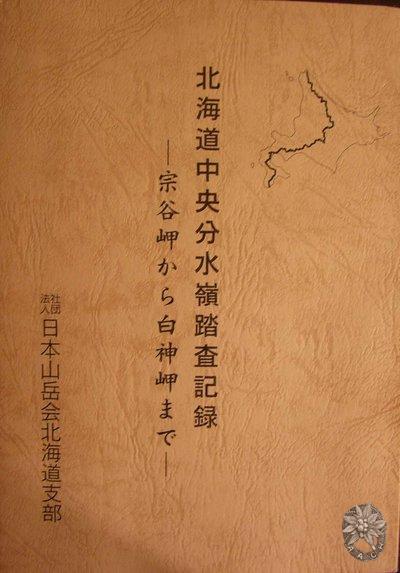 北海道中央分水嶺踏査記録
―宗谷岬から白神岬まで―
社団法人 日本山岳会北海道支部
AACK